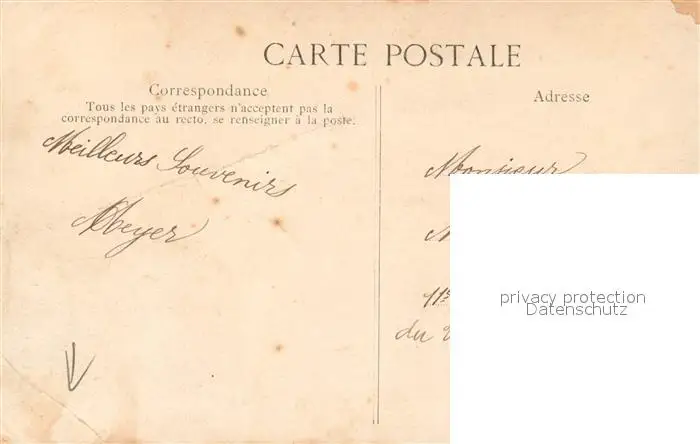 CARTE POSTALE
Correspondance
Tous les pays étrangers n'acceptent pas la
correspondance au recto, se renseigner à la poste.
Meilleurs Souvenirs
Meyer
Adresse
Monsieur
M
11
du
privacy protection
Datenschutz